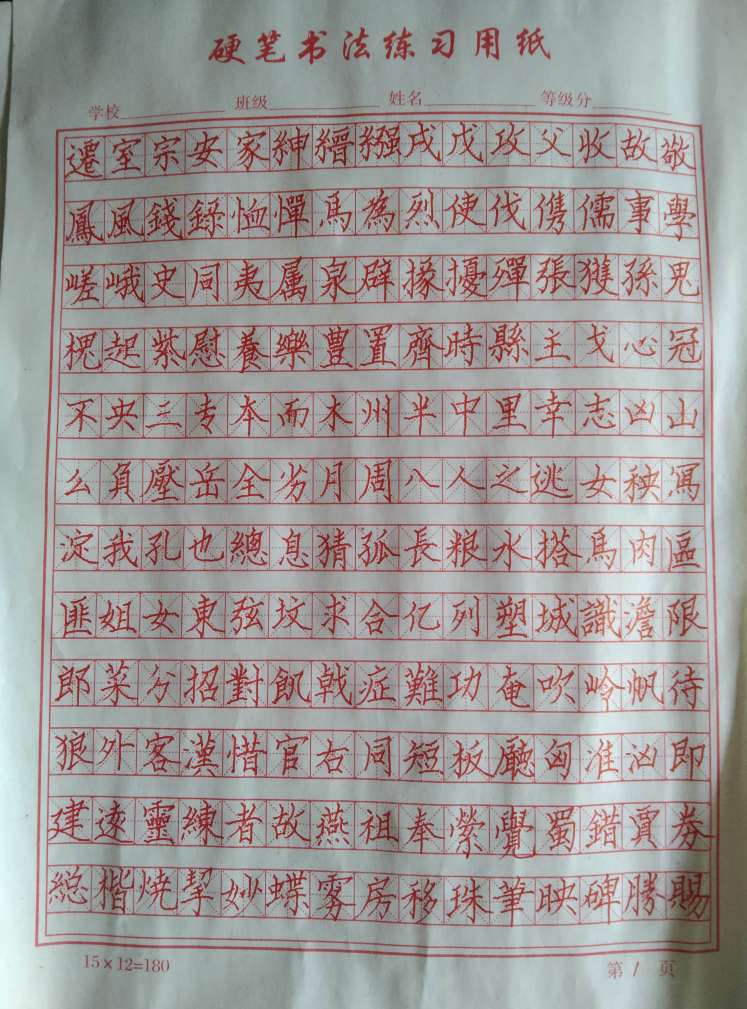 硬笔书法练习用纸
学校 班级 姓名 等级分
遷室宗安家紳縉繦戌戊攻父收故敬
鳳風錢錄恤憚馬為烈使伐儁儒事學
嵯峨史同夷属泉辟掾擾殫張獲孫鬼
槐起紫慰養樂豊置齊時縣主戈心冠
不央三专本而木州半中里幸志凶山
么負壓岳全劣月周八人之逃女秧寫
淀我孔也總息猜孤長粮水搭馬肉區
匪姐女東弦坟求合亿列塑城識澹限
郎菜分招對飢戟症難功奄吹岭帆待
狼外客漢惜官右同短板廳匈淮汹即
建遠靈練者故燕祖奉縈覺蜀錯賈券
総楷燒挈妙蝶雾房移珠筆映碑勝賜
15×12=180
第1页